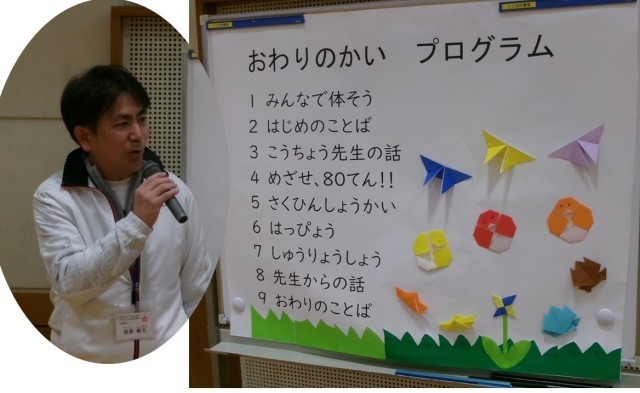 おわりのかい　プログラム
1 みんなで体そう
2 はじめのことば
3 こうちょう先生の話
4 めざせ、80てん!!
5 さくひんしょうかい
6 はっぴょう
7 しゅうりょうしょう
8 先生からの話
9 おわりのことば